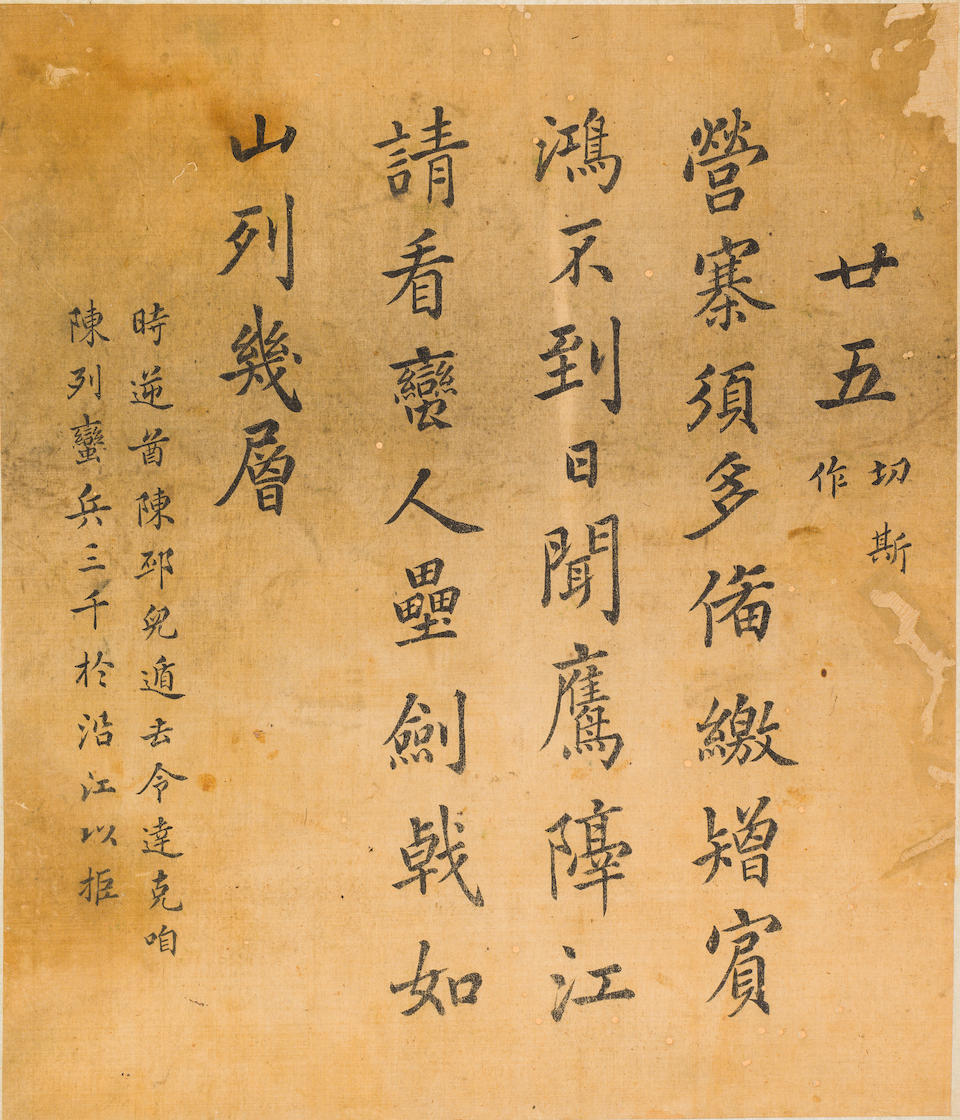 廿五 切斯作
營寨須多俻繳矰賔
鴻不到日聞鷹隔江
請看蠻人壘劍戟如
山列幾層
時逆酋陳邳兒遁去令達克咱
陳列蠻兵三千於沿江以拒